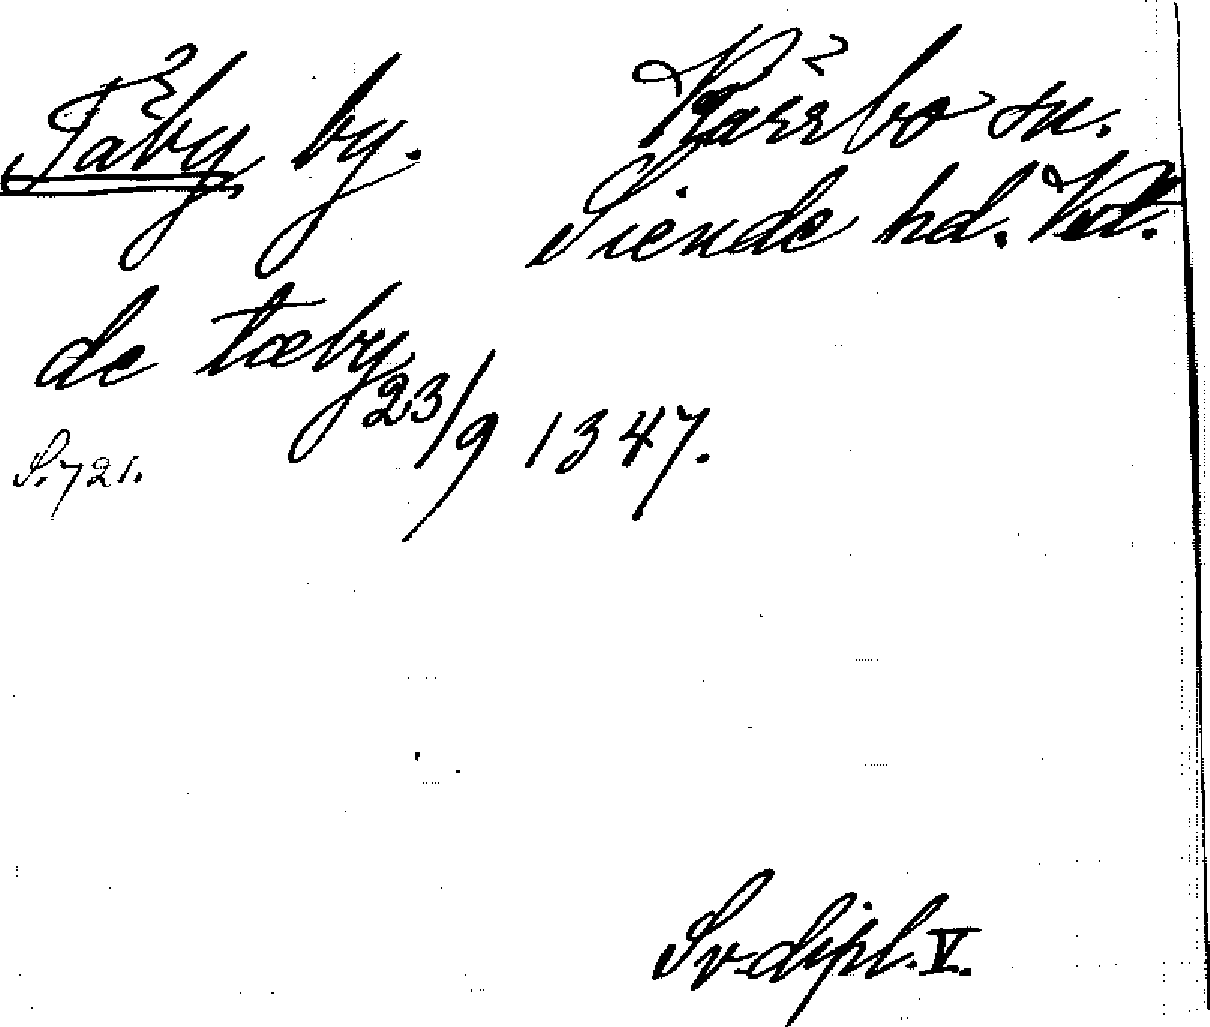 Täby by. Kärrbo sn.
Siende hd.
de tæby
23/9 1347.
S. 721.
Sv. dipl. V.